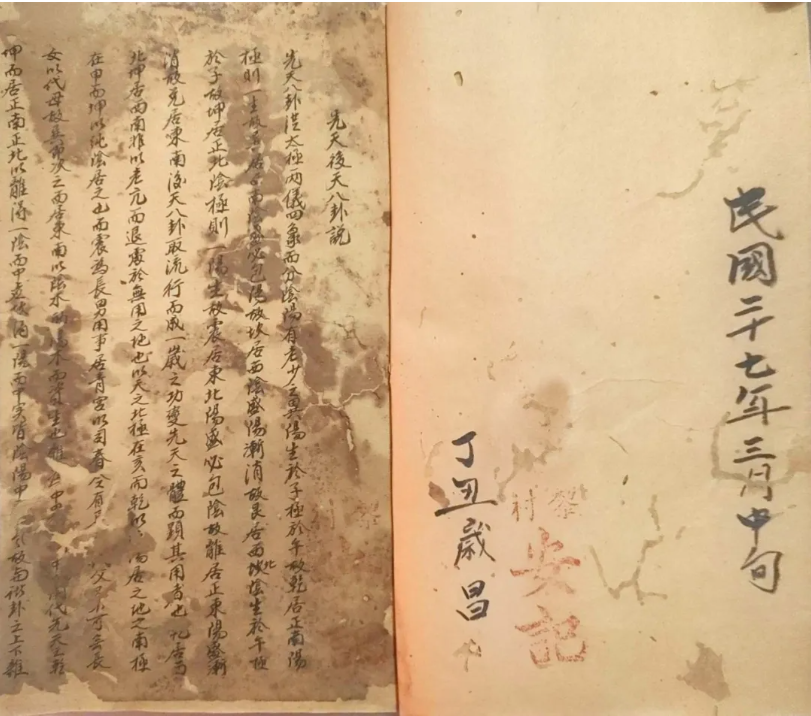 民國二十七年三月中旬
丁丑歲昌
黎村
安記
先天後天八卦説
先天八卦從太極兩儀四象而分陰陽有老少之異陽生於子極於午故乾居正南陽
極則一生故巽居西南陰必包陽故坎居西陰盛陽漸消故艮居西北陰生於午極
於子故坤居正北陰極則一陽生故震居東北陽盛必包陰故離居正東陽盛漸
消故兌居東南後天八卦取流行而成一歲之功變先天之體而顕其用者也居西
北坤居西南非以老亢而退處於無用之地也以天之北極在亥而乾以居之地之南極
在申而坤以純陰居之也而震為長男用事居青宮以司春令父不可長
女以代母故巽次之而居東南以陰木陽木而代先天之乾
坤而居正南正北以離得一陰而中一陽而中實陰陽中故而諸卦之上下難